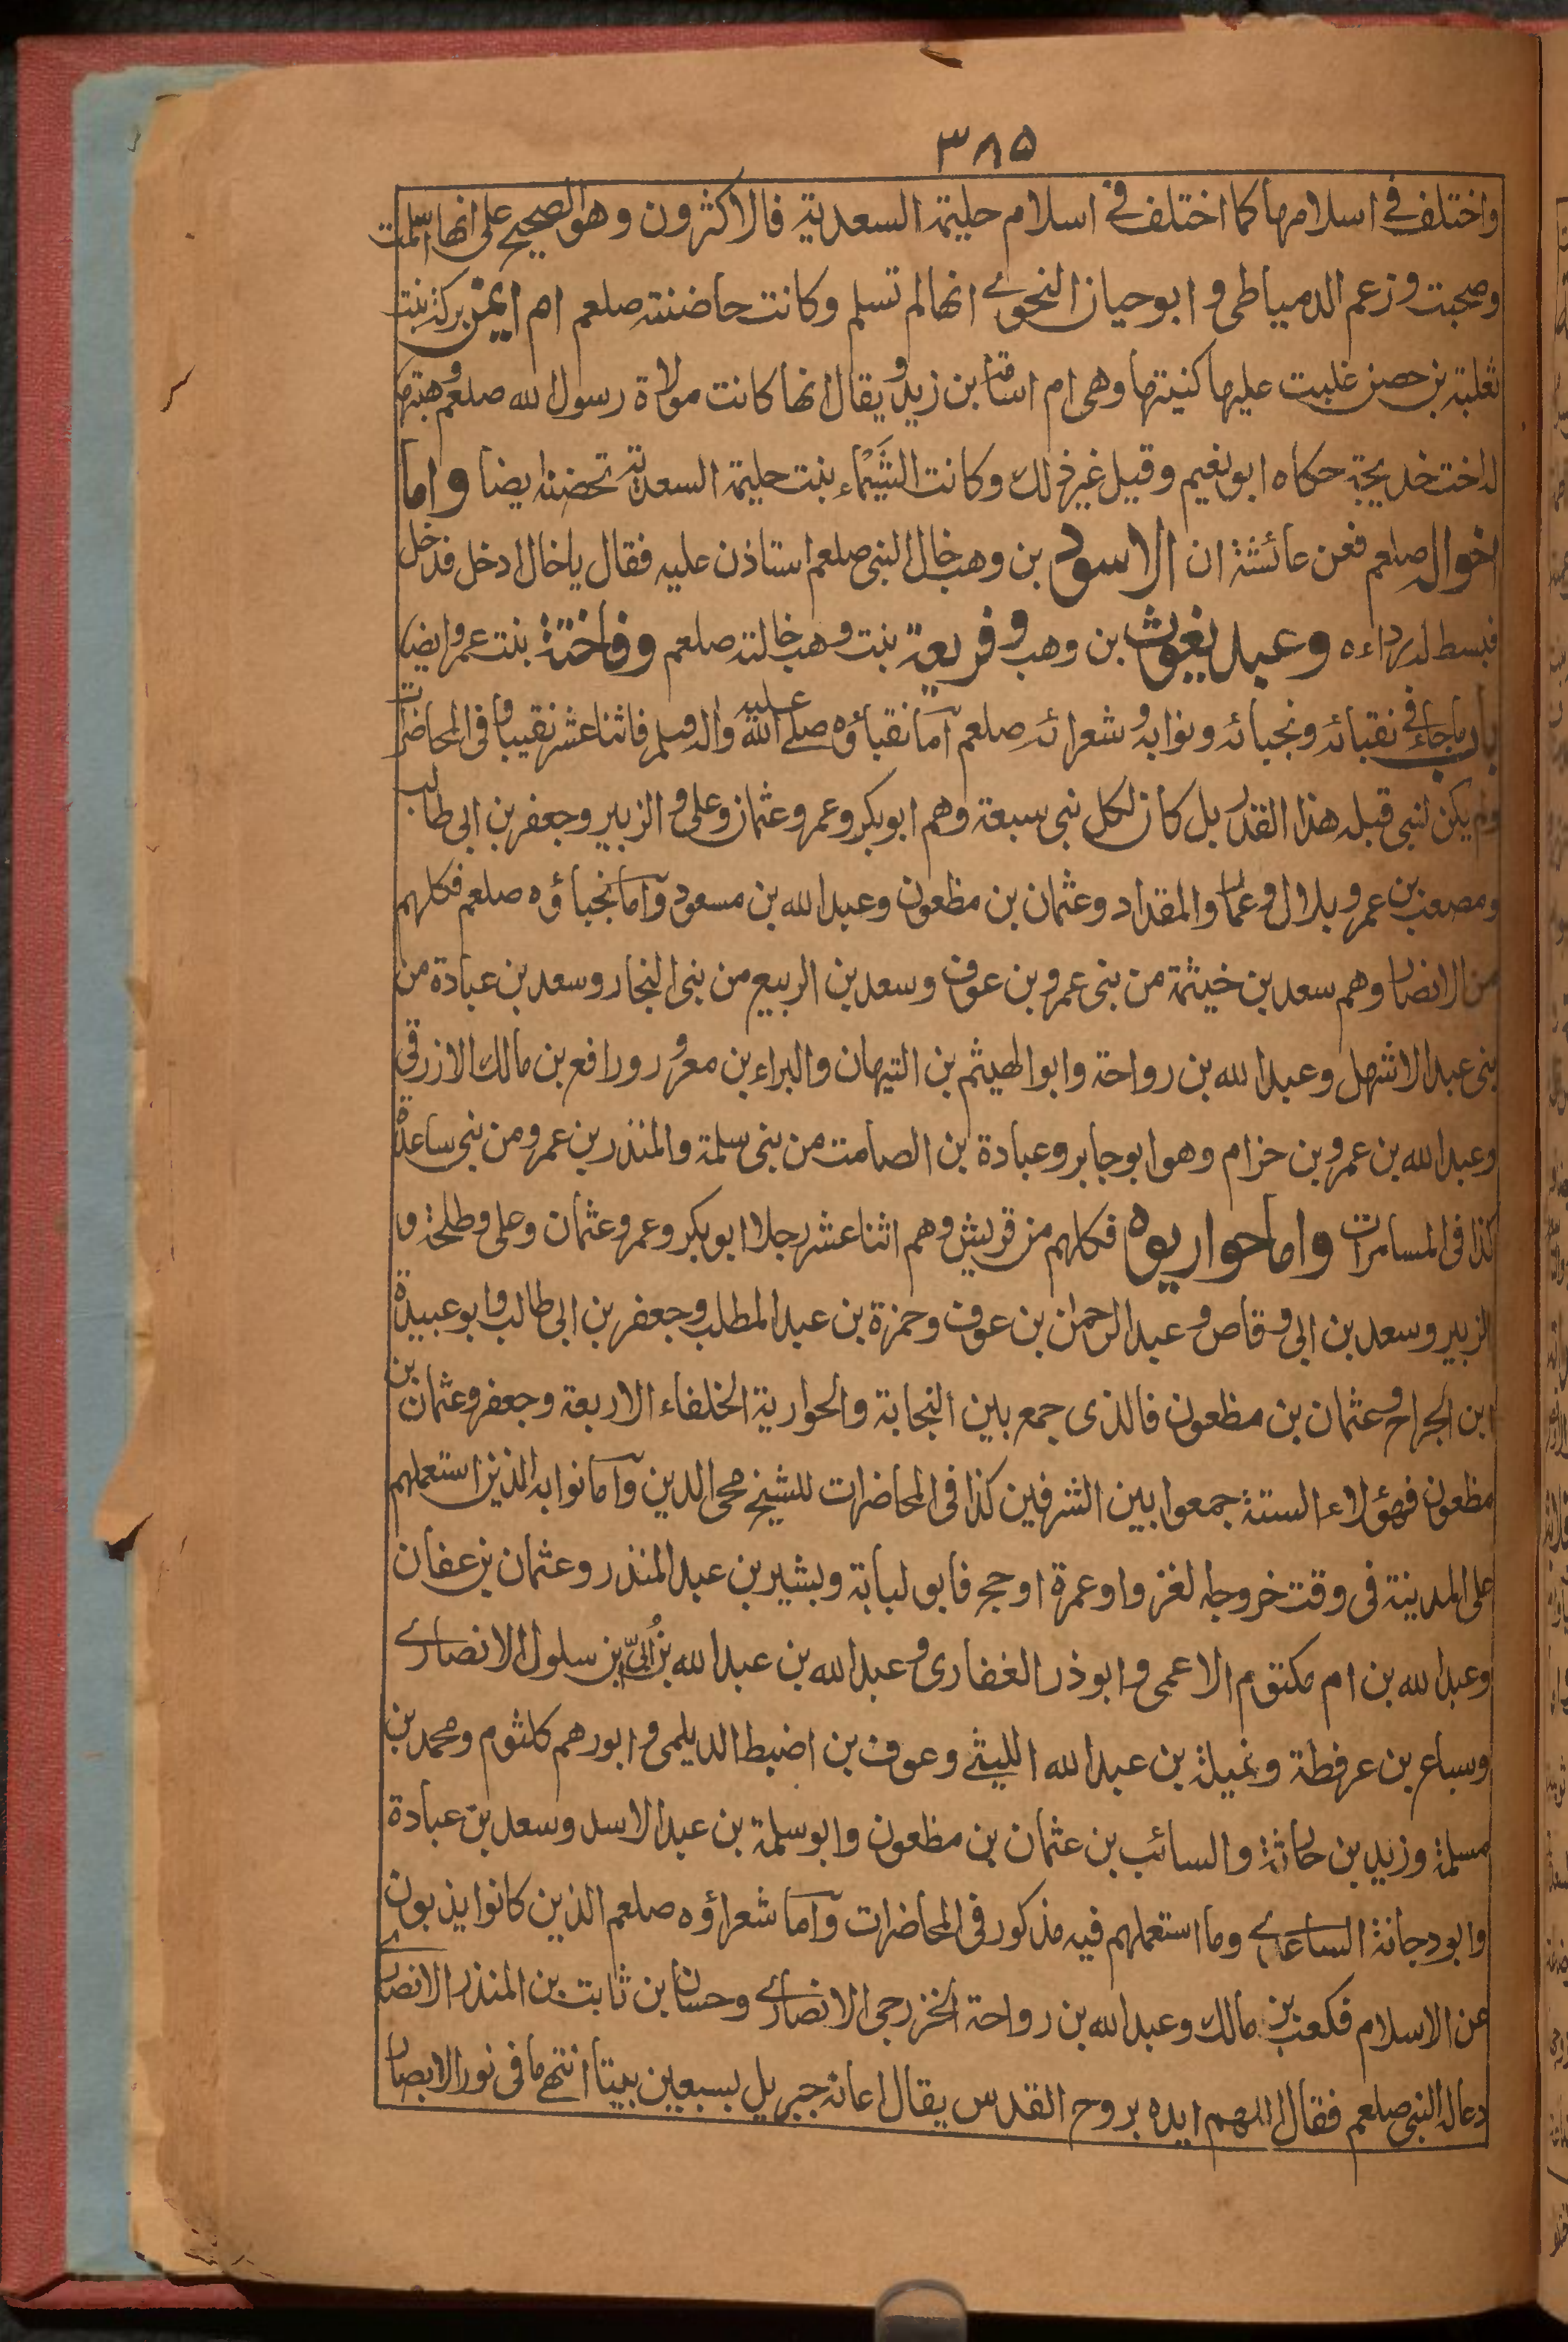 ٣٨٥
واختلف في اسلامها كما اختلف في اسلام حليمة السعدية فالاكثرون وهو الصحيح على انها اسلمت
وصحبت وزعم الدمياطى وابوحيان النحوى انها لم تسلم وكانت حاضنته صلعم ام ايمن بركة بنت
ثعلبة بن حصن غلبت عليها كنيتها وهى ام اسامة بن زيد ويقال انها كانت مولاة رسول الله صلعم وهبتها
له اخت خديجة حكاه ابو نعيم وقيل غير ذلك وكانت الشَّيْماء بنت حليمة السعدية تحضنه ايضا واما
اخواله صلعم فعن عائشة ان الاسود بن وهب خال النبى صلعم استاذن عليه فقال ياخال ادخل فدخل
فبسط له رداءه وعبد يغوث بن وهب وفريعة بنت وهب خالته صلعم وفاختة بنت عمرو ايضا
باب ماجاء فى نقبائه ونجبائه ونوابه وشعرائه صلعم اما نقباؤه صلى الله عليه واله وسلم فاثنا عشر نقيبا وفى المحاضرات
ولم يكن لنبى قبله هذا القدر بل كان لكل نبى سبعة وهم ابوبكر وعمر وعثمان وعلى والزبير وجعفر بن ابى طالب
ومصعب بن عمر وبلال وعمار والمقداد وعثمان بن مظعون وعبد الله بن مسعود واما نجباؤه صلعم فكلهم
من الانصار وهم سعد بن خيثمة من بنى عمرو بن عوف وسعد بن الربيع من بنى النجار وسعد بن عبادة من
بنى عبد الاشهل وعبد الله بن رواحة وابو الهيثم بن التيهان والبراء بن معرور ورافع بن مالك الازرقى
وعبد الله بن عمرو بن حزام وهو ابو جابر وعبادة بن الصامت من بنى سلمة والمنذر بن عمرو من بنى ساعدة
كذا فى المسامرات واما حواريوه فكلهم من قريش وهم اثنا عشر رجلا ابوبكر وعمر وعثمان وعلى وطلحة و
الزبير وسعد بن ابى وقاص وعبد الرحمان بن عوف وحمزة بن عبد المطلب وجعفر بن ابى طالب وابو عبيدة
ابن الجراح وعثمان بن مظعون فالذى جمع بين النجابة والحوارية الخلفاء الاربعة وجعفر وعثمان بن
مظعون فهؤلاء الستة جمعوا بين الشرفين كذا فى المحاضرات للشيخ محى الدين واما نوابه الذين استعملهم
على المدينة فى وقت خروجه لغزو او عمرة او حج فابو لبابة وبشير بن عبد المنذر وعثمان بن عفان
وعبد الله بن ام مكتوم الاعمى وابوذر الغفارى وعبد الله بن عبد الله بن اُبىّ بن سلول الانصارى
وسباع بن عرفطة ونميلة بن عبد الله الليثى وعوف بن اضبط الديلمى وابورهم كلثوم ومحمد بن
مسلمة وزيد بن حارثة والسائب بن عثمان بن مظعون وابو سلمة بن عبد الاسد وسعد بن عبادة
وابو دجانة الساعدى وما استعملهم فيه مذكور فى المحاضرات واما شعراؤه صلعم الذين كانوا يذبون
عن الاسلام فكعب بن مالك وعبد الله بن رواحة الخزرجى الانصارى وحسان بن ثابت بن المنذر الانصارى
دعا له النبى صلعم فقال اللهم ايده بروح القدس يقال اعانه جبريل بسبعين بيتا انتهى ما فى نور الابصار